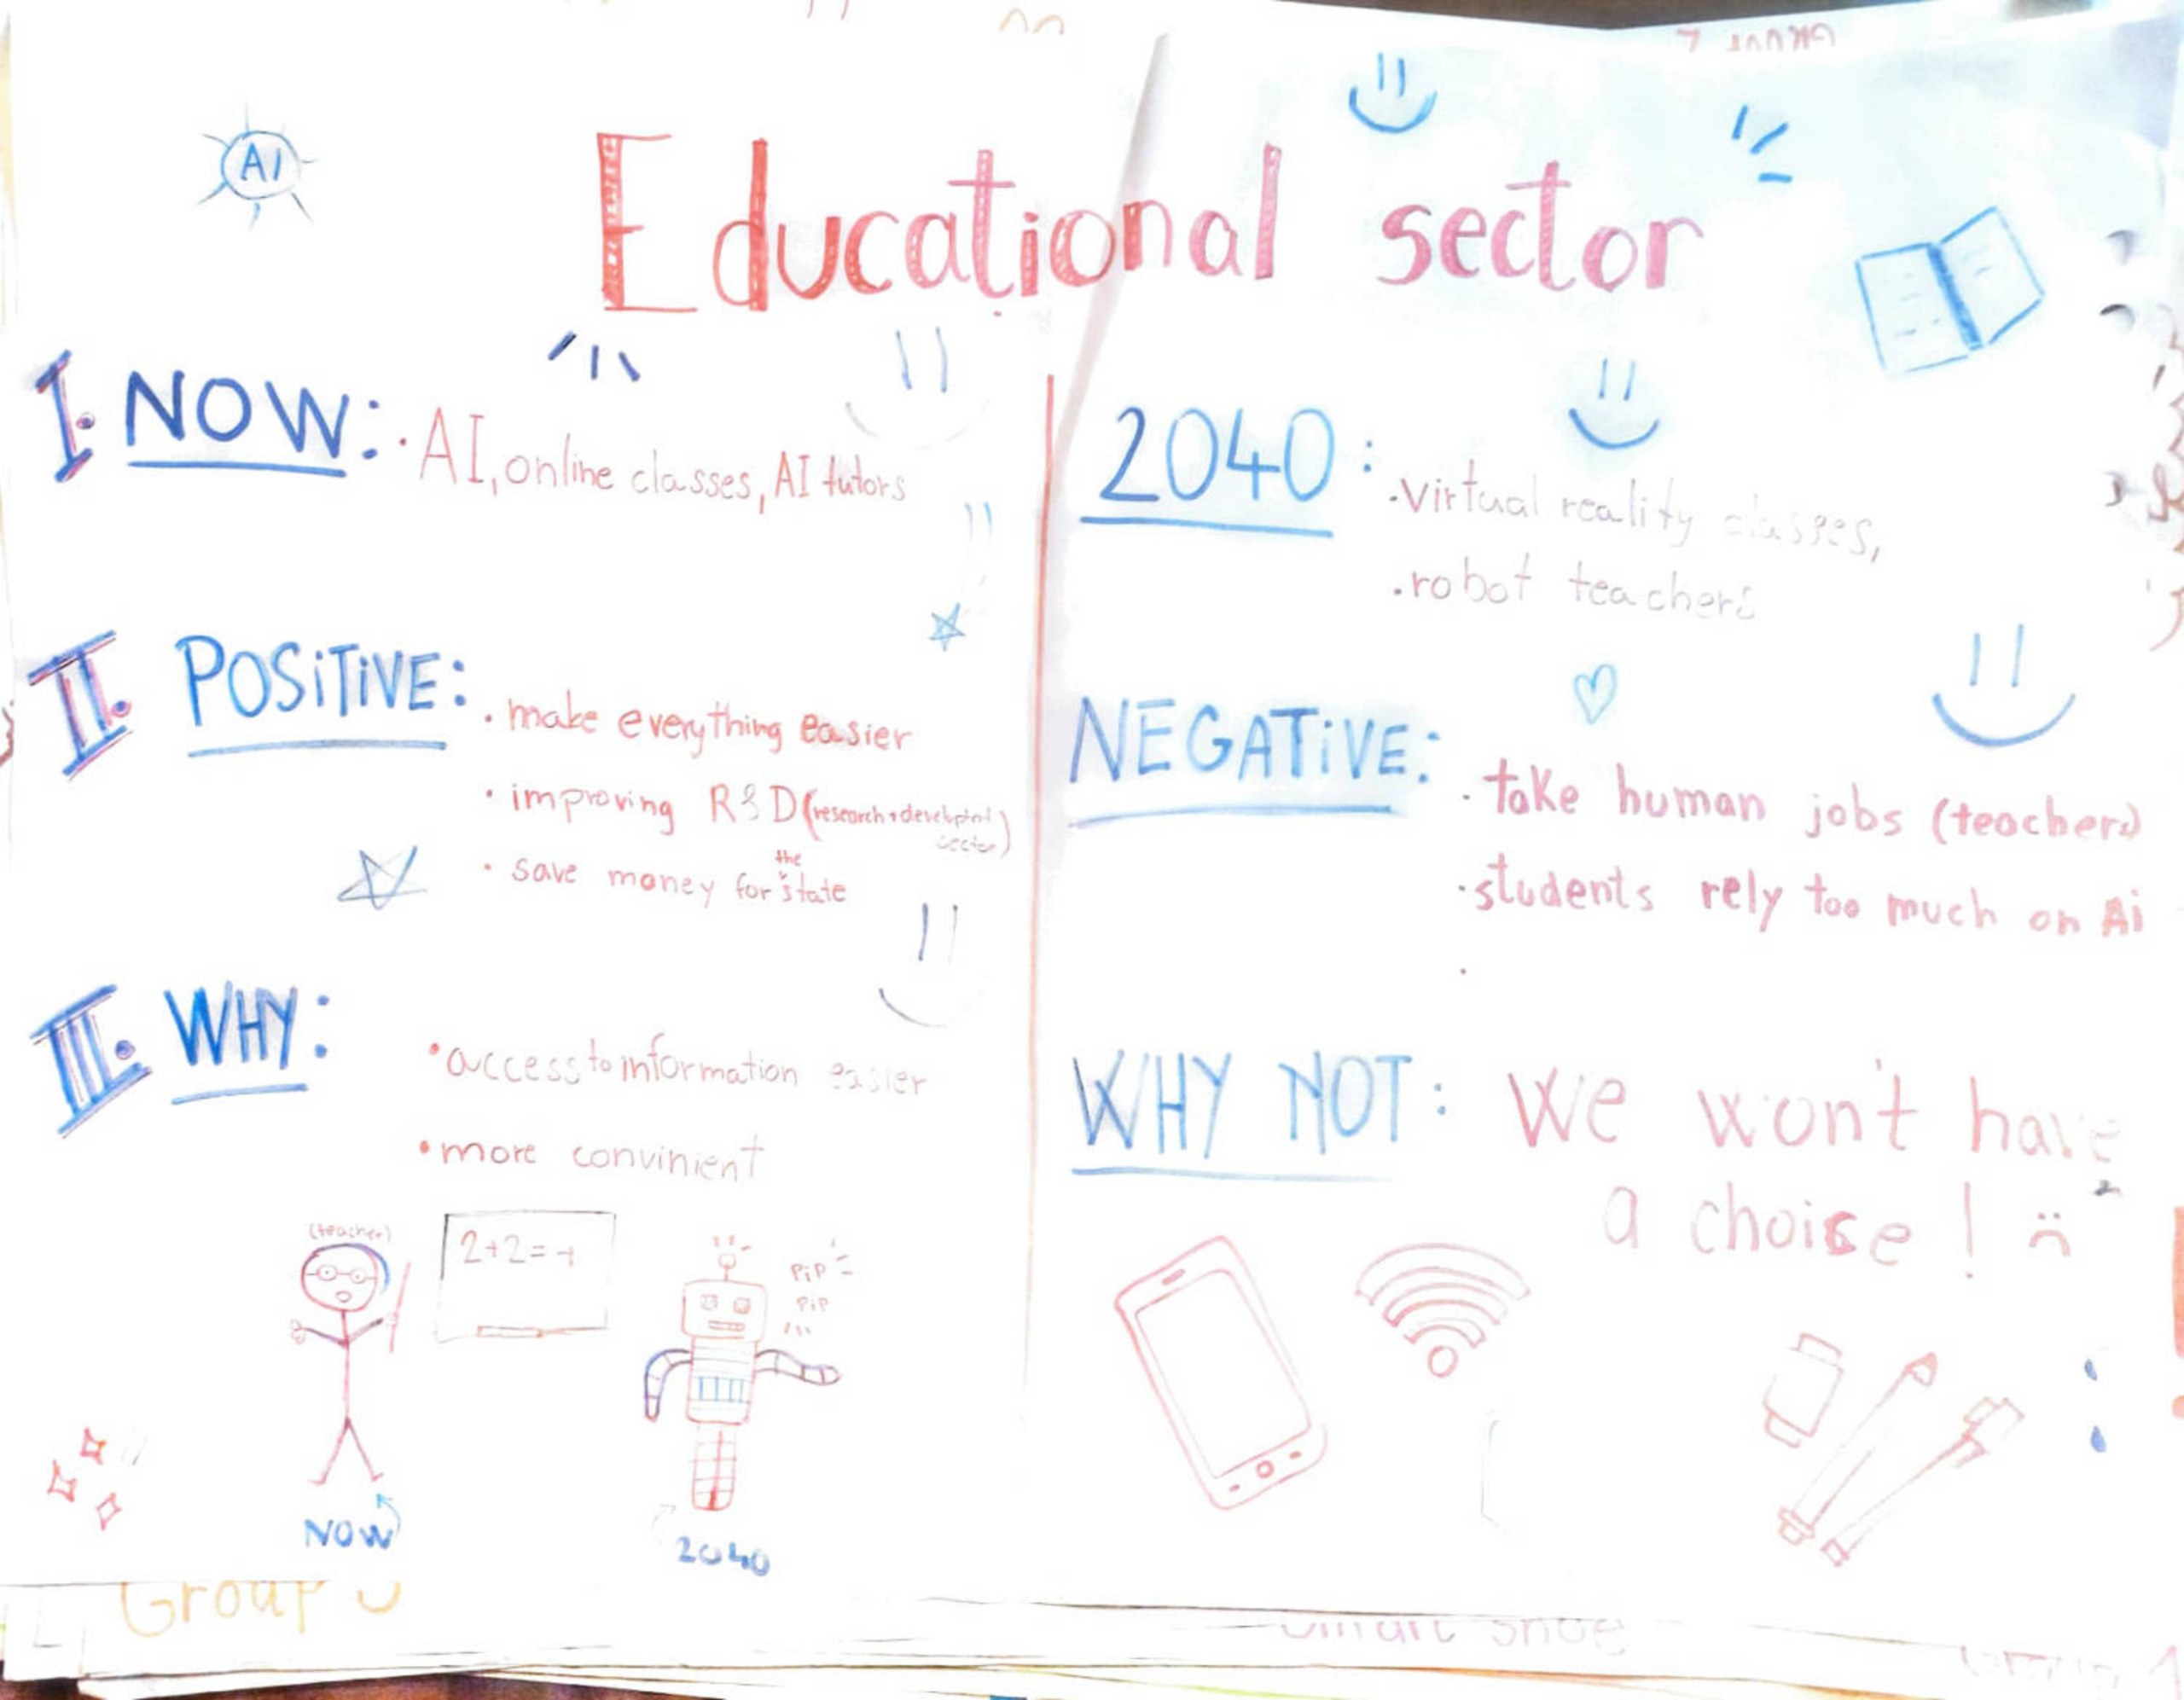 AI
Educational sector
I. NOW: · AI, online classes, AI tutors
2040: · virtual reality classes,
· robot teachers
II. POSiTiVE: · make everything easier
· improving R&D (research + 
sector)
· save money for the state
NEGATiVE: · take human jobs (teachers)
· students rely too much on Ai
·
III. WHY: · access to information easier
· more convinient
WHY NOT: We won't have
a choise! :(
(teacher)
2+2=
PiP
PiP
...
NOW
2040
Group
Smart shoe